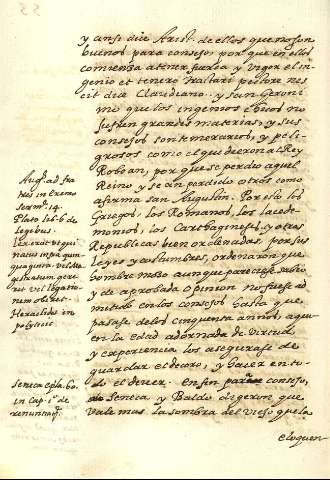 y ansi dice Arist. de ellos que no son
buenos para consejo, por que en ellos
comiença a tener fuerça y vigor el in-
genio et tenero tractari pectore nes-
cit dice Claudiano. y san Geroni-
mo que los ingenios chicos no
sufren grandes materias, y sus
consejos son temerarios, y peli-
grosos como el que dieron al Rey
Roboan, por que se perdio aquel
Reino y se an perdido otros como
afirma san Augustin. Por esto los
Griegos, los Romanos, los lacede-
monios, los Carthaginesses, y otras
Republicas bien ordenadas, por sus
leyes y costumbres, ordenaron que
hombre moço aunque pareciesse sabio
y de aprobada opinion no fuese ad-
mitido en los consejos hasta que
pasase de los cinquenta años, a que
en la edad adornada de virtud
y experiencia los asegurase de
guardar el decoro, y hacer en to-
do el dever. En fin para consejo,
Seneca y Baldo digeron que
vale mas la sombra del viejo que la
eloquen
Aug. ad fra
tres in Eremo
serm. 14.
Plato lib. 6 de
legibus.
quinquaginta
Heraclides in
politiis
Seneca epla. 60.
in cap. 1.º de
renuntia